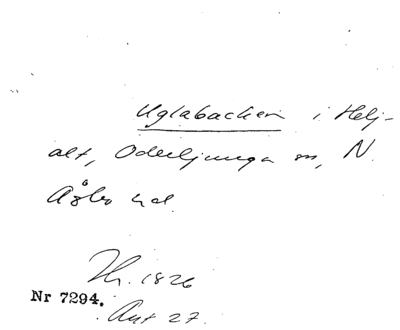 Uglabacken i Helj-
alt, Oderljunga sn, N.
Åsbo hd.
Hr. 1826
Nr 7294.
Akt 27.